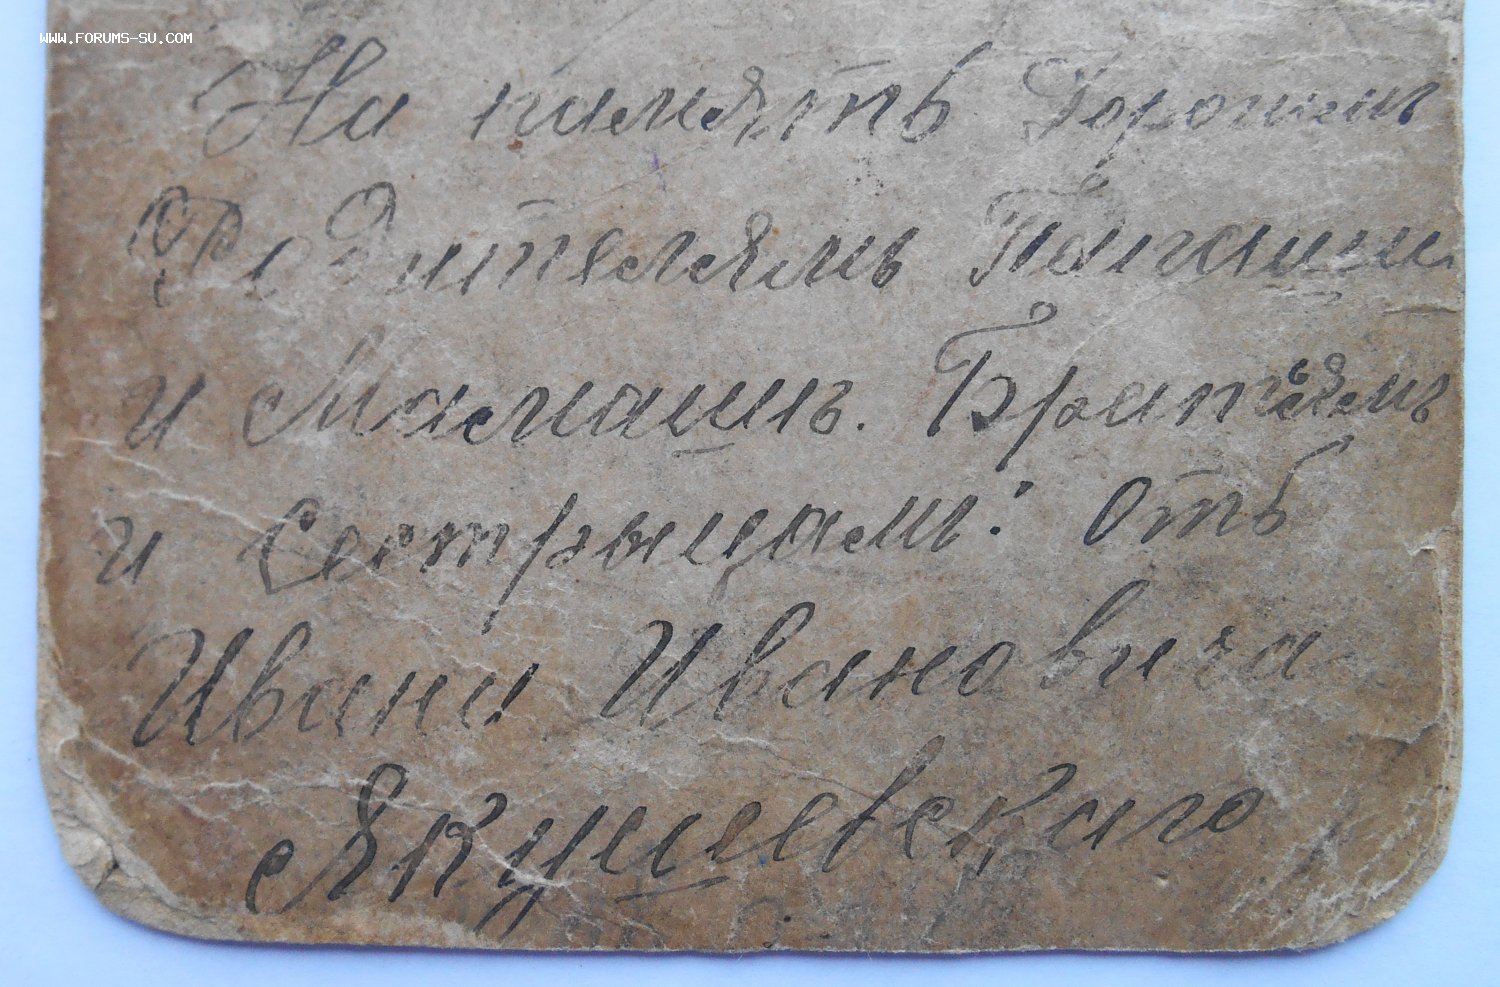 WWW.FORUMS-SU.COM
На память Дорогим
Родителямъ Папаши
и Мамашь. Братьямъ
и Сестрыцамъ: отъ
Ивана Ивановича
Якушевскаго